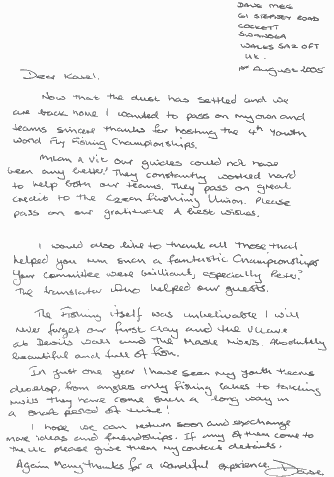 DAVE MEE
61 STEPNEY ROAD
COCKETT
SWANSEA
WALES SA2 0FT
UK.
1st August 2005
Dear Karel.
Now that the dust has settled and we
are back home I wanted to pass on my own and
teams sincere thanks for hosting the 4th Youth
World Fly Fishing Championships.
Milan & Vit our guides could not have
been any better! They constantly worked hard
to help both our teams. They pass on great
credit to the Czech Fishing Union. Please
pass on our gratitude & best wishes.
I would also like to thank all those that
helped you run such a fantastic Championships
Your committee were brilliant, especially Petr.
The translator who helped our guests.
The Fishing itself was unbelievable I will
never forget our first day and the Vltava
at Devils wall and the Masle Absolutely
beautiful and full of fish.
In just one year I have seen my youth teams
develop, from anglers only fishing lakes to tackling
rivers They have come such a long way in
a short period of time!
I hope we can return soon and exchange
more ideas and friendships. If any of them come to
the UK please give them my contact details.
Again Many thanks for a wonderful experience. Dave